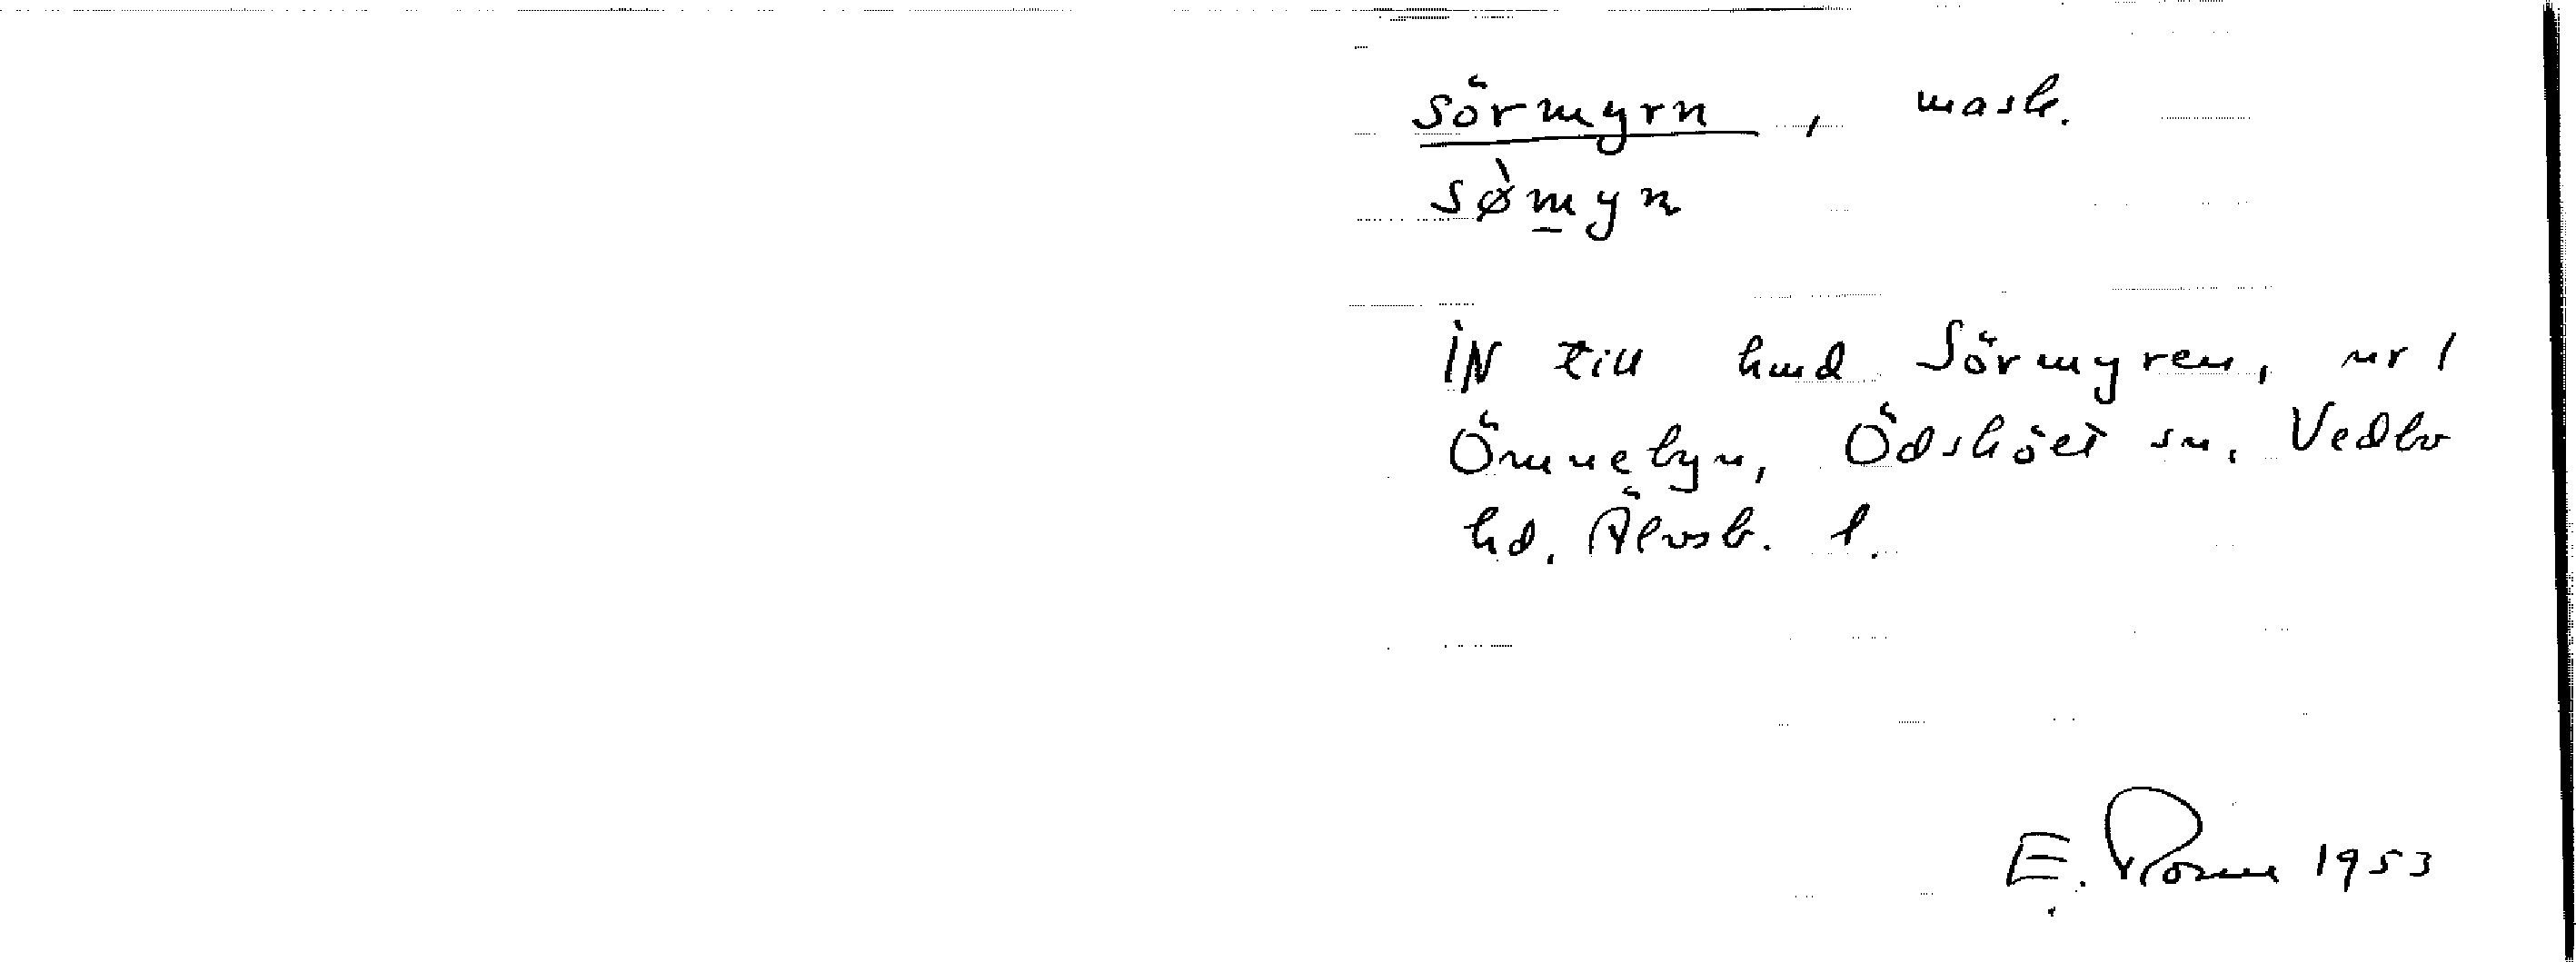 sörmyrn, mask.
sø̀m̲yn
IN till hmd Sörmyren, nr 1
Önnebyn, Ödsköet sn. Vedbo
hd. Älvsb. l.
E. 1953